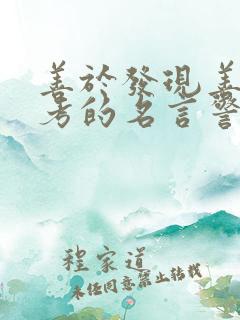 善於發現善
考的名言警
程家道
未经同意禁止转载